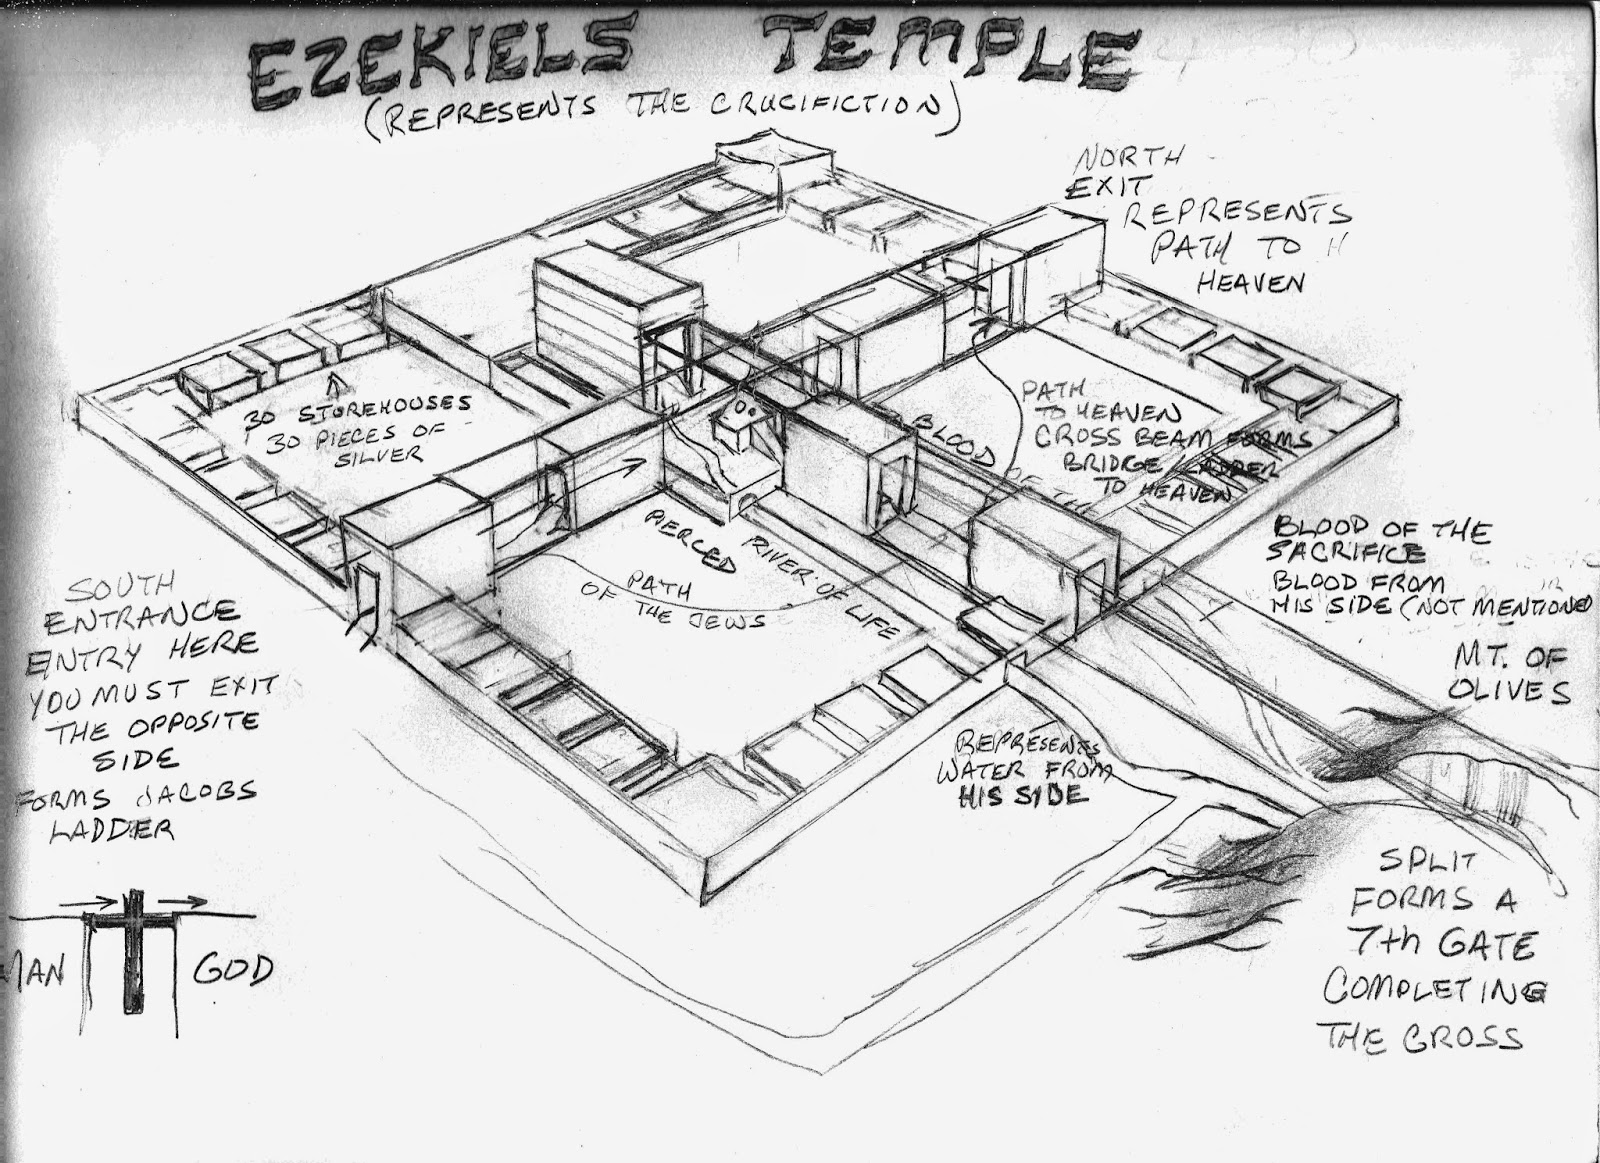 EZEKIELS TEMPLE
(REPRESENTS THE CRUCIFICTION)
NORTH
EXIT
REPRESENTS
PATH TO H
HEAVEN
30 STOREHOUSES
30 PIECES OF
SILVER
PATH
TO HEAVEN
CROSS BEAM FORMS
BRIDGE/LADDER
TO HEAVEN
BLOOD OF THE
PIERCED
RIVER OF LIFE
PATH
OF THE JEWS
BLOOD OF THE
SACRIFICE
BLOOD FROM
HIS SIDE (NOT MENTIONED
MT. OF
OLIVES
SOUTH
ENTRANCE
ENTRY HERE
YOU MUST EXIT
THE OPPOSITE
SIDE
FORMS JACOBS
LADDER
REPRESENTS
WATER FROM
HIS SIDE
SPLIT
FORMS A
7th GATE
COMPLETING
THE CROSS
MAN GOD